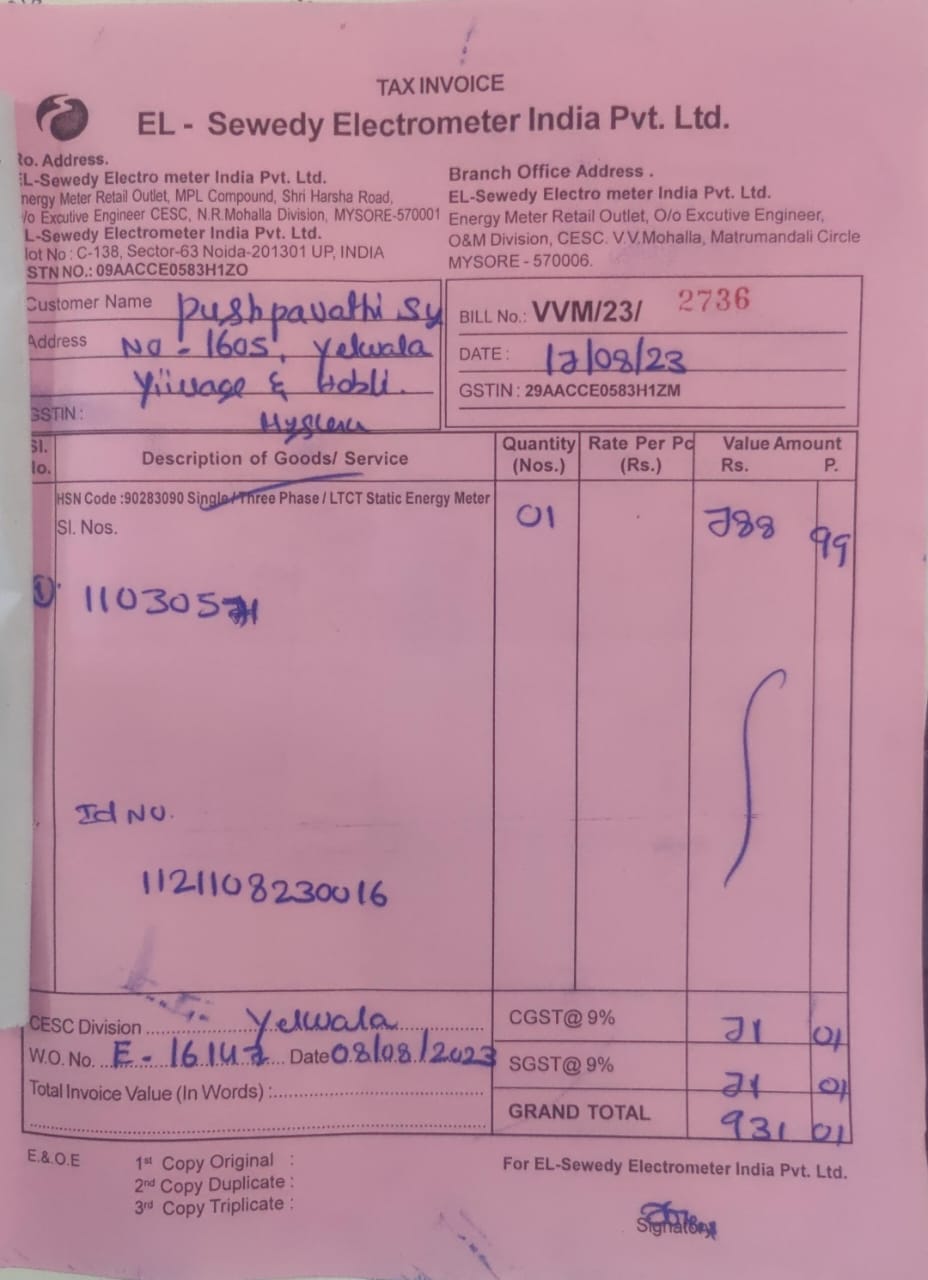 TAX INVOICE
EL - Sewedy Electrometer India Pvt. Ltd.
Ro. Address.
EL-Sewedy Electro meter India Pvt. Ltd.
nergy Meter Retail Outlet, MPL Compound, Shri Harsha Road,
/o Excutive Engineer CESC, N.R.Mohalla Division, MYSORE-570001
L-Sewedy Electrometer India Pvt. Ltd.
lot No : C-138, Sector-63 Noida-201301 UP, INDIA
STN NO.: 09AACCE0583H1ZO
Branch Office Address .
EL-Sewedy Electro meter India Pvt. Ltd.
Energy Meter Retail Outlet, O/o Excutive Engineer,
O&M Division, CESC. V.V.Mohalla, Matrumandali Circle
MYSORE - 570006.
Customer Name Pushpavathi Sy
Address No - 1605, Yelwala
& Hobli.
GSTIN :
BILL No.: VVM/23/ 2736
DATE : 17/08/23
GSTIN : 29AACCE0583H1ZM
Sl. No. Description of Goods/ Service Quantity (Nos.) Rate Per Pc (Rs.) Value Amount Rs. P.
HSN Code :90283090 Single / Three Phase / LTCT Static Energy Meter 01 788 99
Sl. Nos.
1)
Id No.
1121108230016
CESC Division Yelwala
W.O. No. E - 16147 Date 08/08/2023
Total Invoice Value (In Words) :
CGST@ 9% 71 01
SGST@ 9% 71 01
GRAND TOTAL 931 01
E.&.O.E
1st Copy Original :
2nd Copy Duplicate :
3rd Copy Triplicate :
For EL-Sewedy Electrometer India Pvt. Ltd.
Signatory